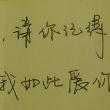 ，请你记得
我如此爱你